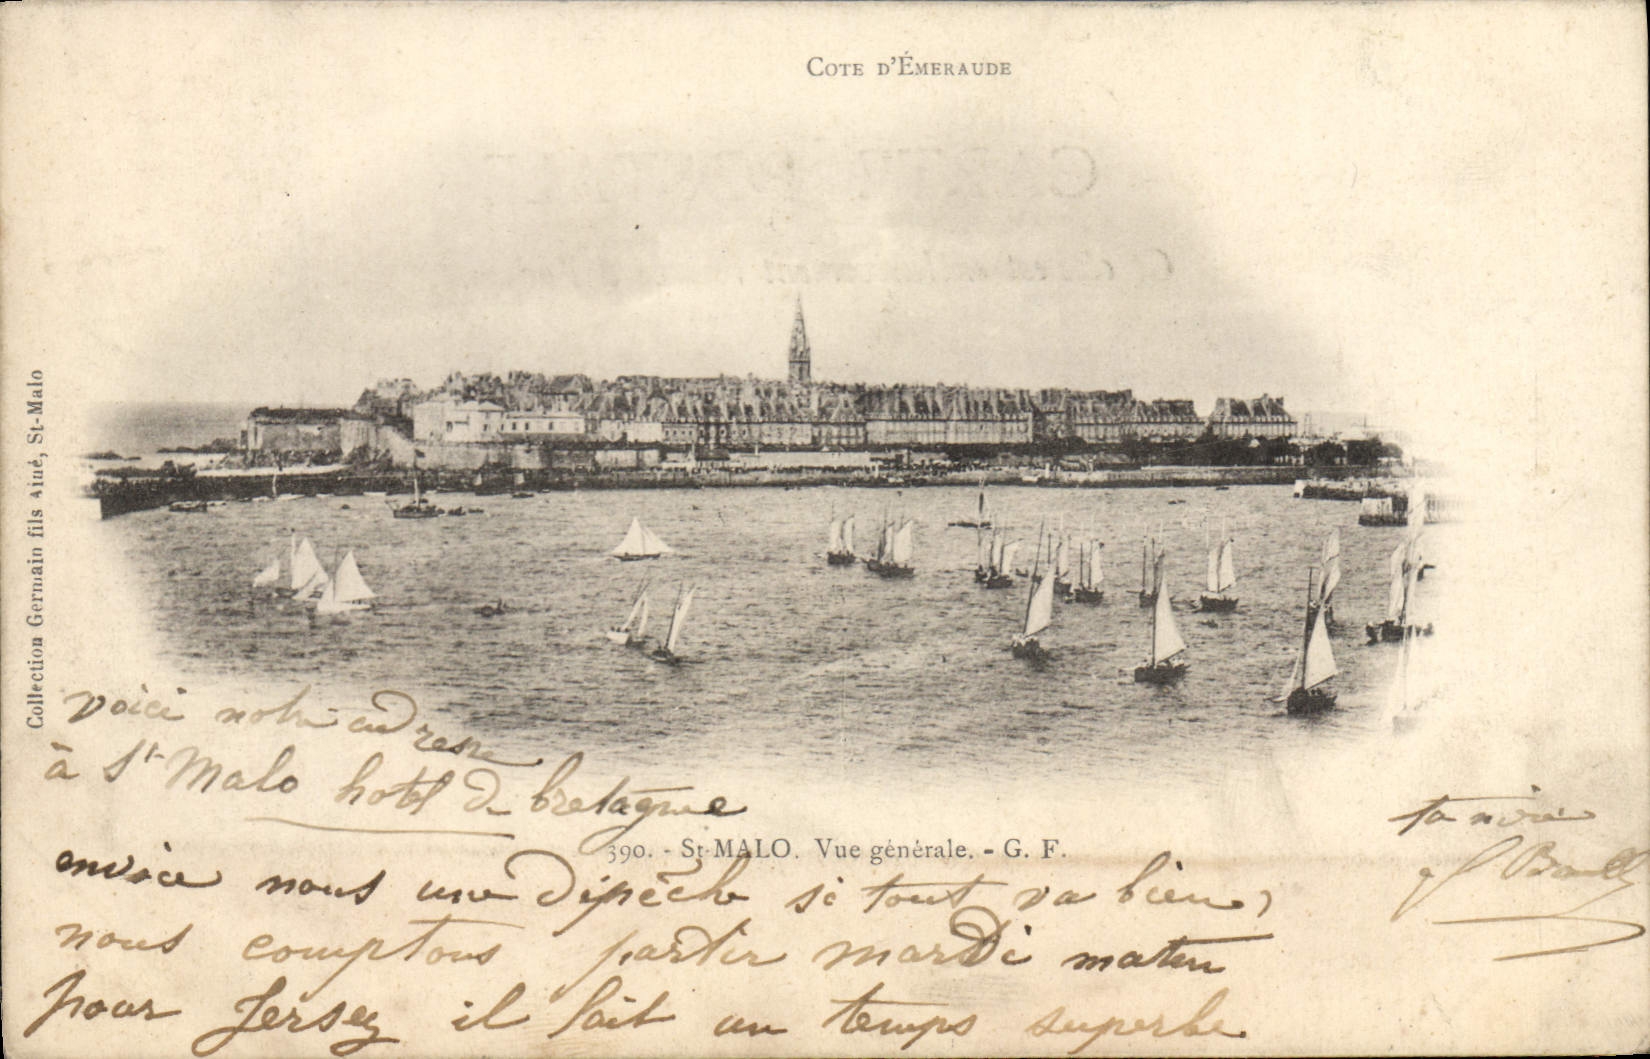 COTE D'ÉMERAUDE
Collection Germain fils Aîné, St-Malo
voici notre adresse
à St Malo hotel de bretagne
390. - St-MALO. Vue générale. - G. F.
envoie nous une dépêche si tout va bien,
nous comptons partir mardi matin
pour Jersey il fait un temps superbe
ta